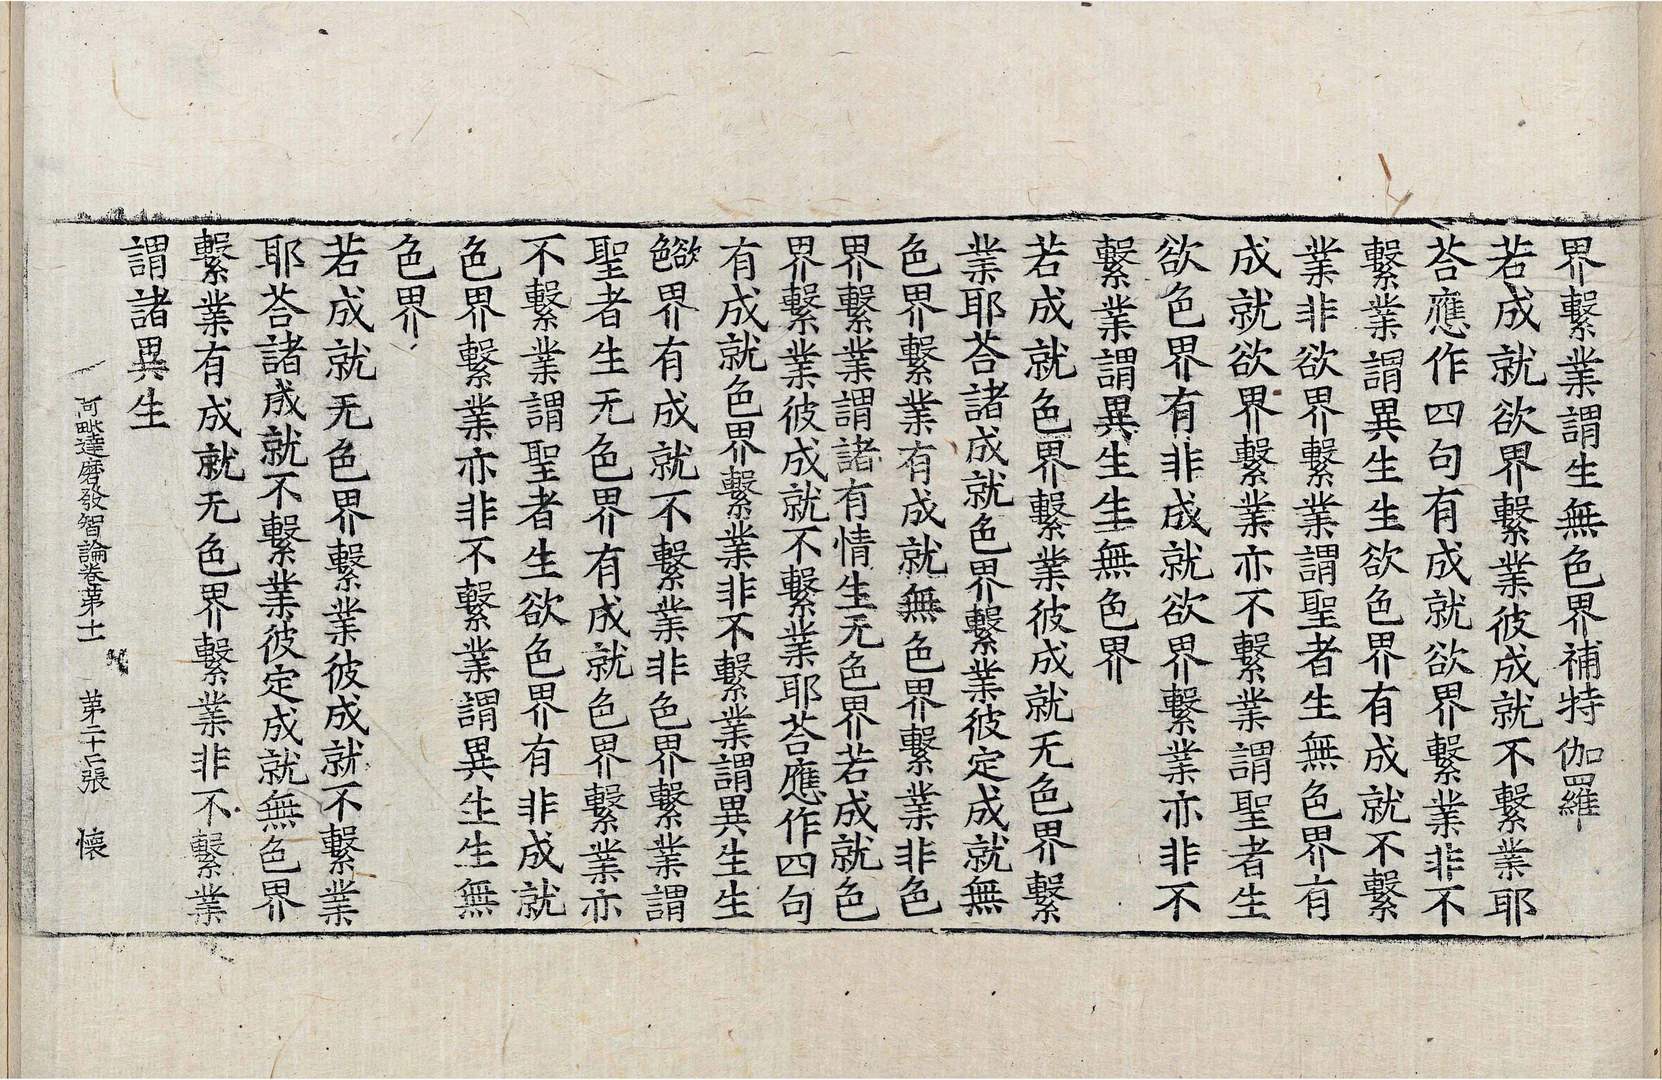 界繫業謂生無色界補特伽羅
若成就欲界繫業彼成就不繫業耶
荅應作四句有成就欲界繫業非不
繫業謂異生生欲色界有成就不繫
業非欲界繫業謂聖者生無色界有
成就欲界繫業亦不繫業謂聖者生
欲色界有非成就欲界繫業亦非不
繫業謂異生生無色界
若成就色界繫業彼成就无色界繫
業耶荅諸成就色界繫業彼定成就無
色界繫業有成就無色界繫業非色
界繫業謂諸有情生无色界若成就色
界繫業彼成就不繫業耶荅應作四句
有成就色界繫業非不繫業謂異生生
欲色界有成就不繫業非色界繫業謂
聖者生无色界有成就色界繫業亦
不繫業謂聖者生欲色界有非成就
色界繫業亦非不繫業謂異生生無
色界
若成就无色界繫業彼成就不繫業
耶荅諸成就不繫業彼定成就無色界
繫業有成就无色界繫業非不繫業
謂諸異生
阿毗達磨發智論卷第十一 第二十二張 懷